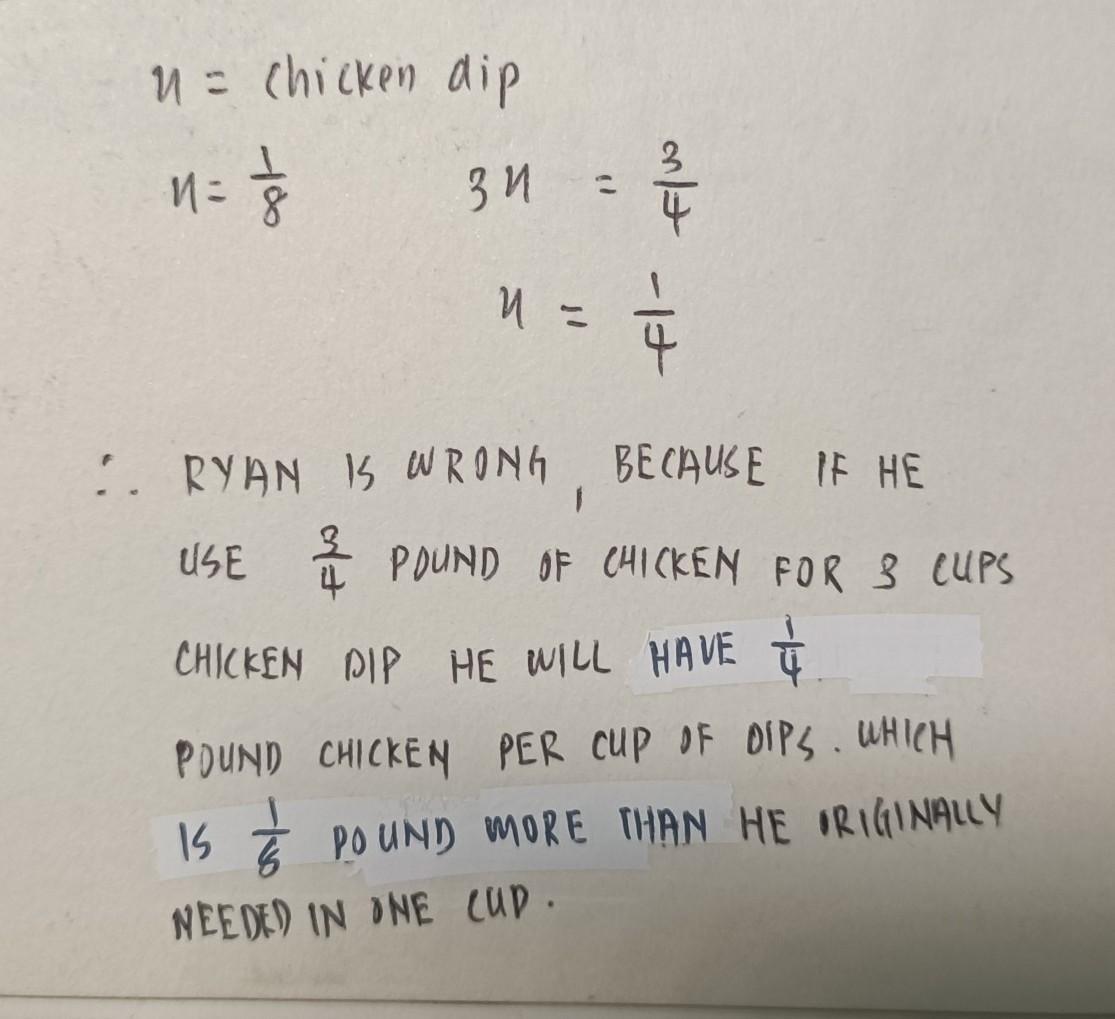 x = chicken dip
x = 1/8 3x = 3/4
x = 1/4
∴ RYAN IS WRONG, BECAUSE IF HE
USE 3/4 POUND OF CHICKEN FOR 3 CUPS
CHICKEN DIP HE WILL HAVE 1/4
POUND CHICKEN PER CUP OF DIPS. WHICH
IS 1/8 POUND MORE THAN HE ORIGINALLY
NEEDED IN ONE CUP.